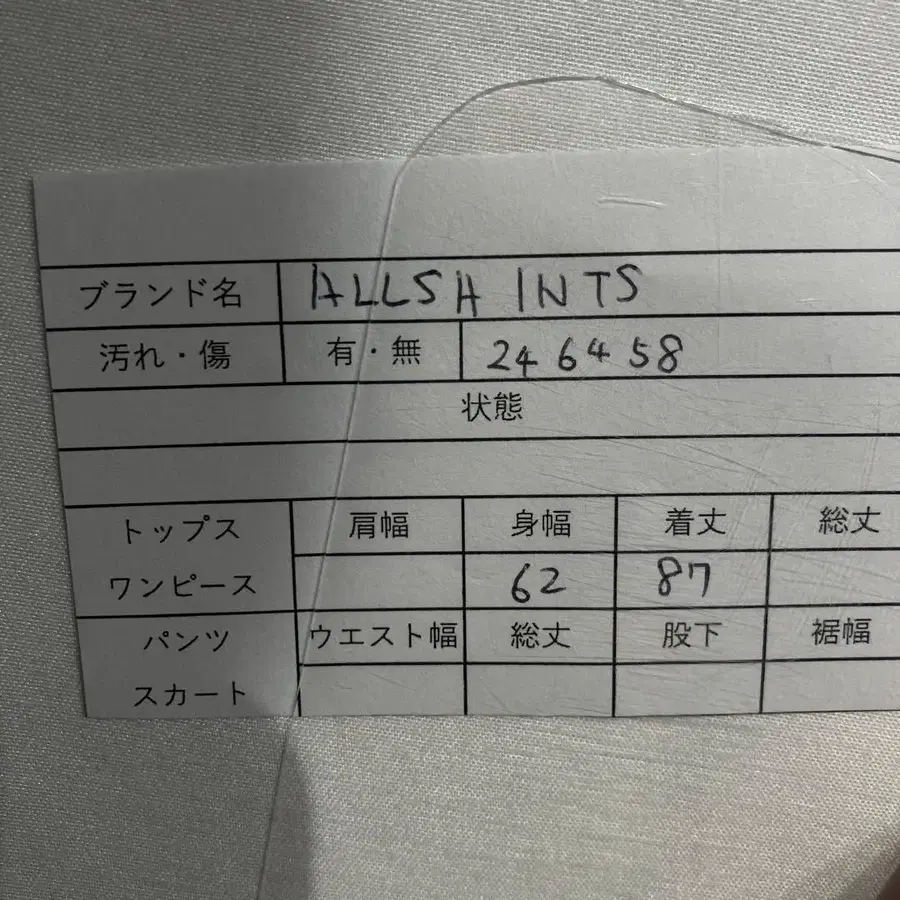 ブランド名 ALLSHINTS
汚れ・傷 有・無 246458
状態
トップス 肩幅 身幅 着丈 総丈
ワンピース 62 87
パンツ ウエスト幅 総丈 股下 裾幅
スカート